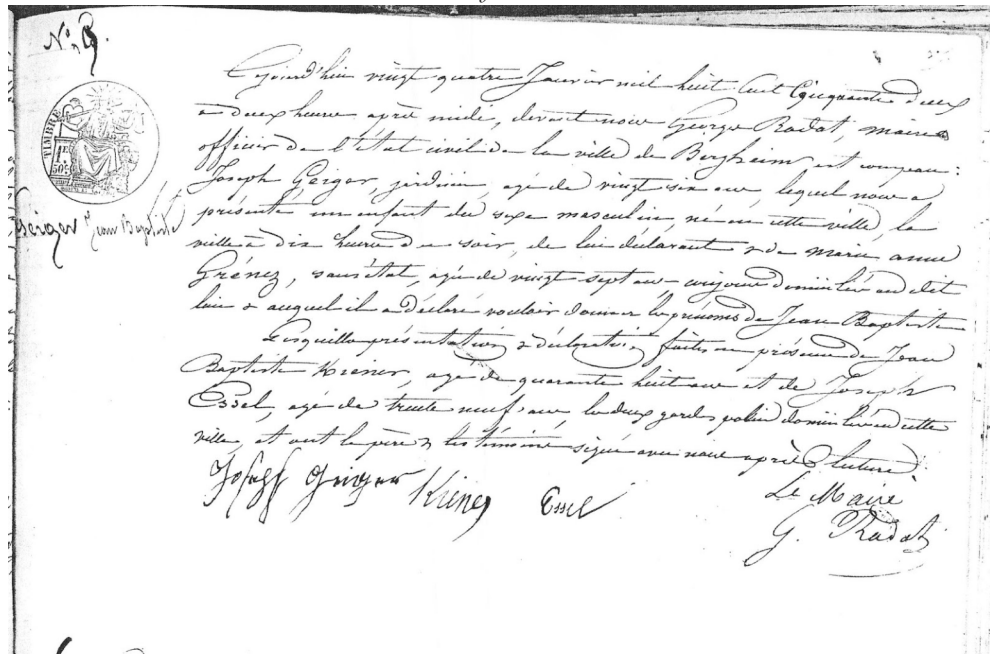 N° 9.
TIMBRE
1F.
50C.
Geiger Jean Baptiste
Cejourd'hui vingt quatre Janvier mil huit Cent Cinquante deux
à deux heures après midi, devant nous George Radat, maire
officier de l'état civil de la ville de Bergheim est comparu :
Joseph Geiger, jardinier, agé de vingt six ans, lequel nous a
présenté un enfant du sexe masculin né en cette ville, la
veille à dix heures du soir, de lui déclarant & de Marie anne
Grénez, sans état, agée de vingt sept ans conjoints domiciliés audit
lieu & auquel il a déclaré vouloir donner les prénoms de Jean Baptiste
Lesquelles présentation & déclaration faites en présence de Jean
Baptiste Kiener, agé de quarante huit ans et de Joseph
Essel, agé de trente neuf ans, les deux gardes police domiciliés en cette
ville, et ont le père & les témoins signé avec nous après lecture
Joseph Geiger Kiener Essel
Le Maire
G. Radat